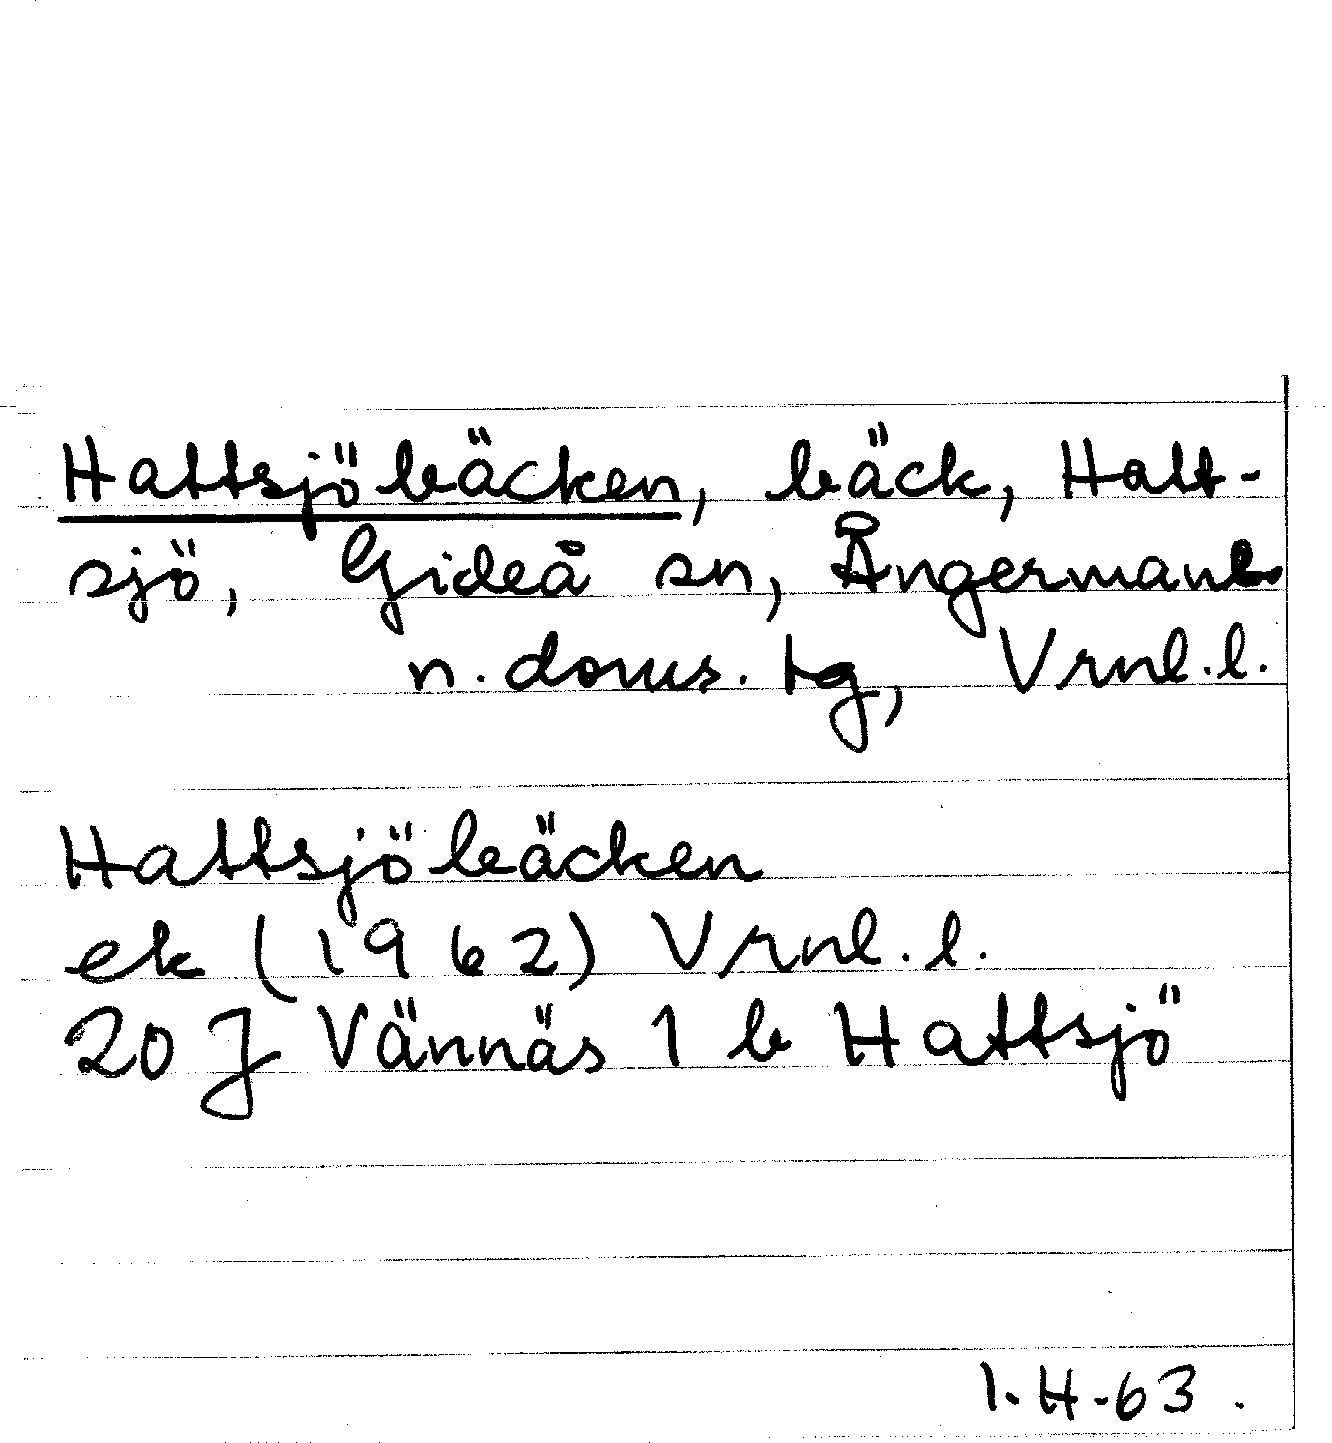 Hattsjöbäcken, bäck, Hatt-
sjö, Gideå sn, Ångermanl.
n. doms. tg, Vrnl. l.
Hattsjöbäcken
ek (1962) Vrnl. l.
20 J Vännäs 1 b Hattsjö
I. H-63.